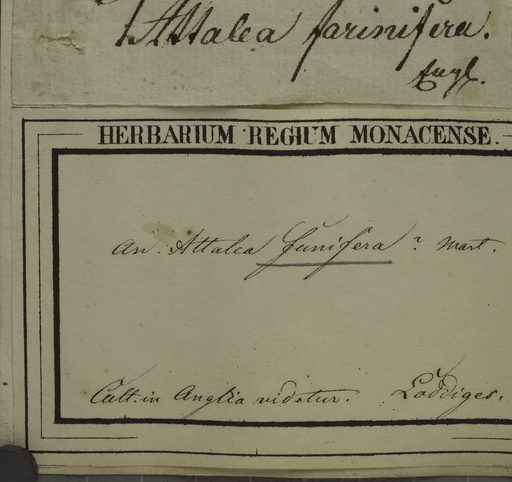 Attalea farinifera.
Angl.
HERBARIUM REGIUM MONACENSE.
An. Attalea funifera? Mart.
Cult. in Anglia videtur. Loddiges.